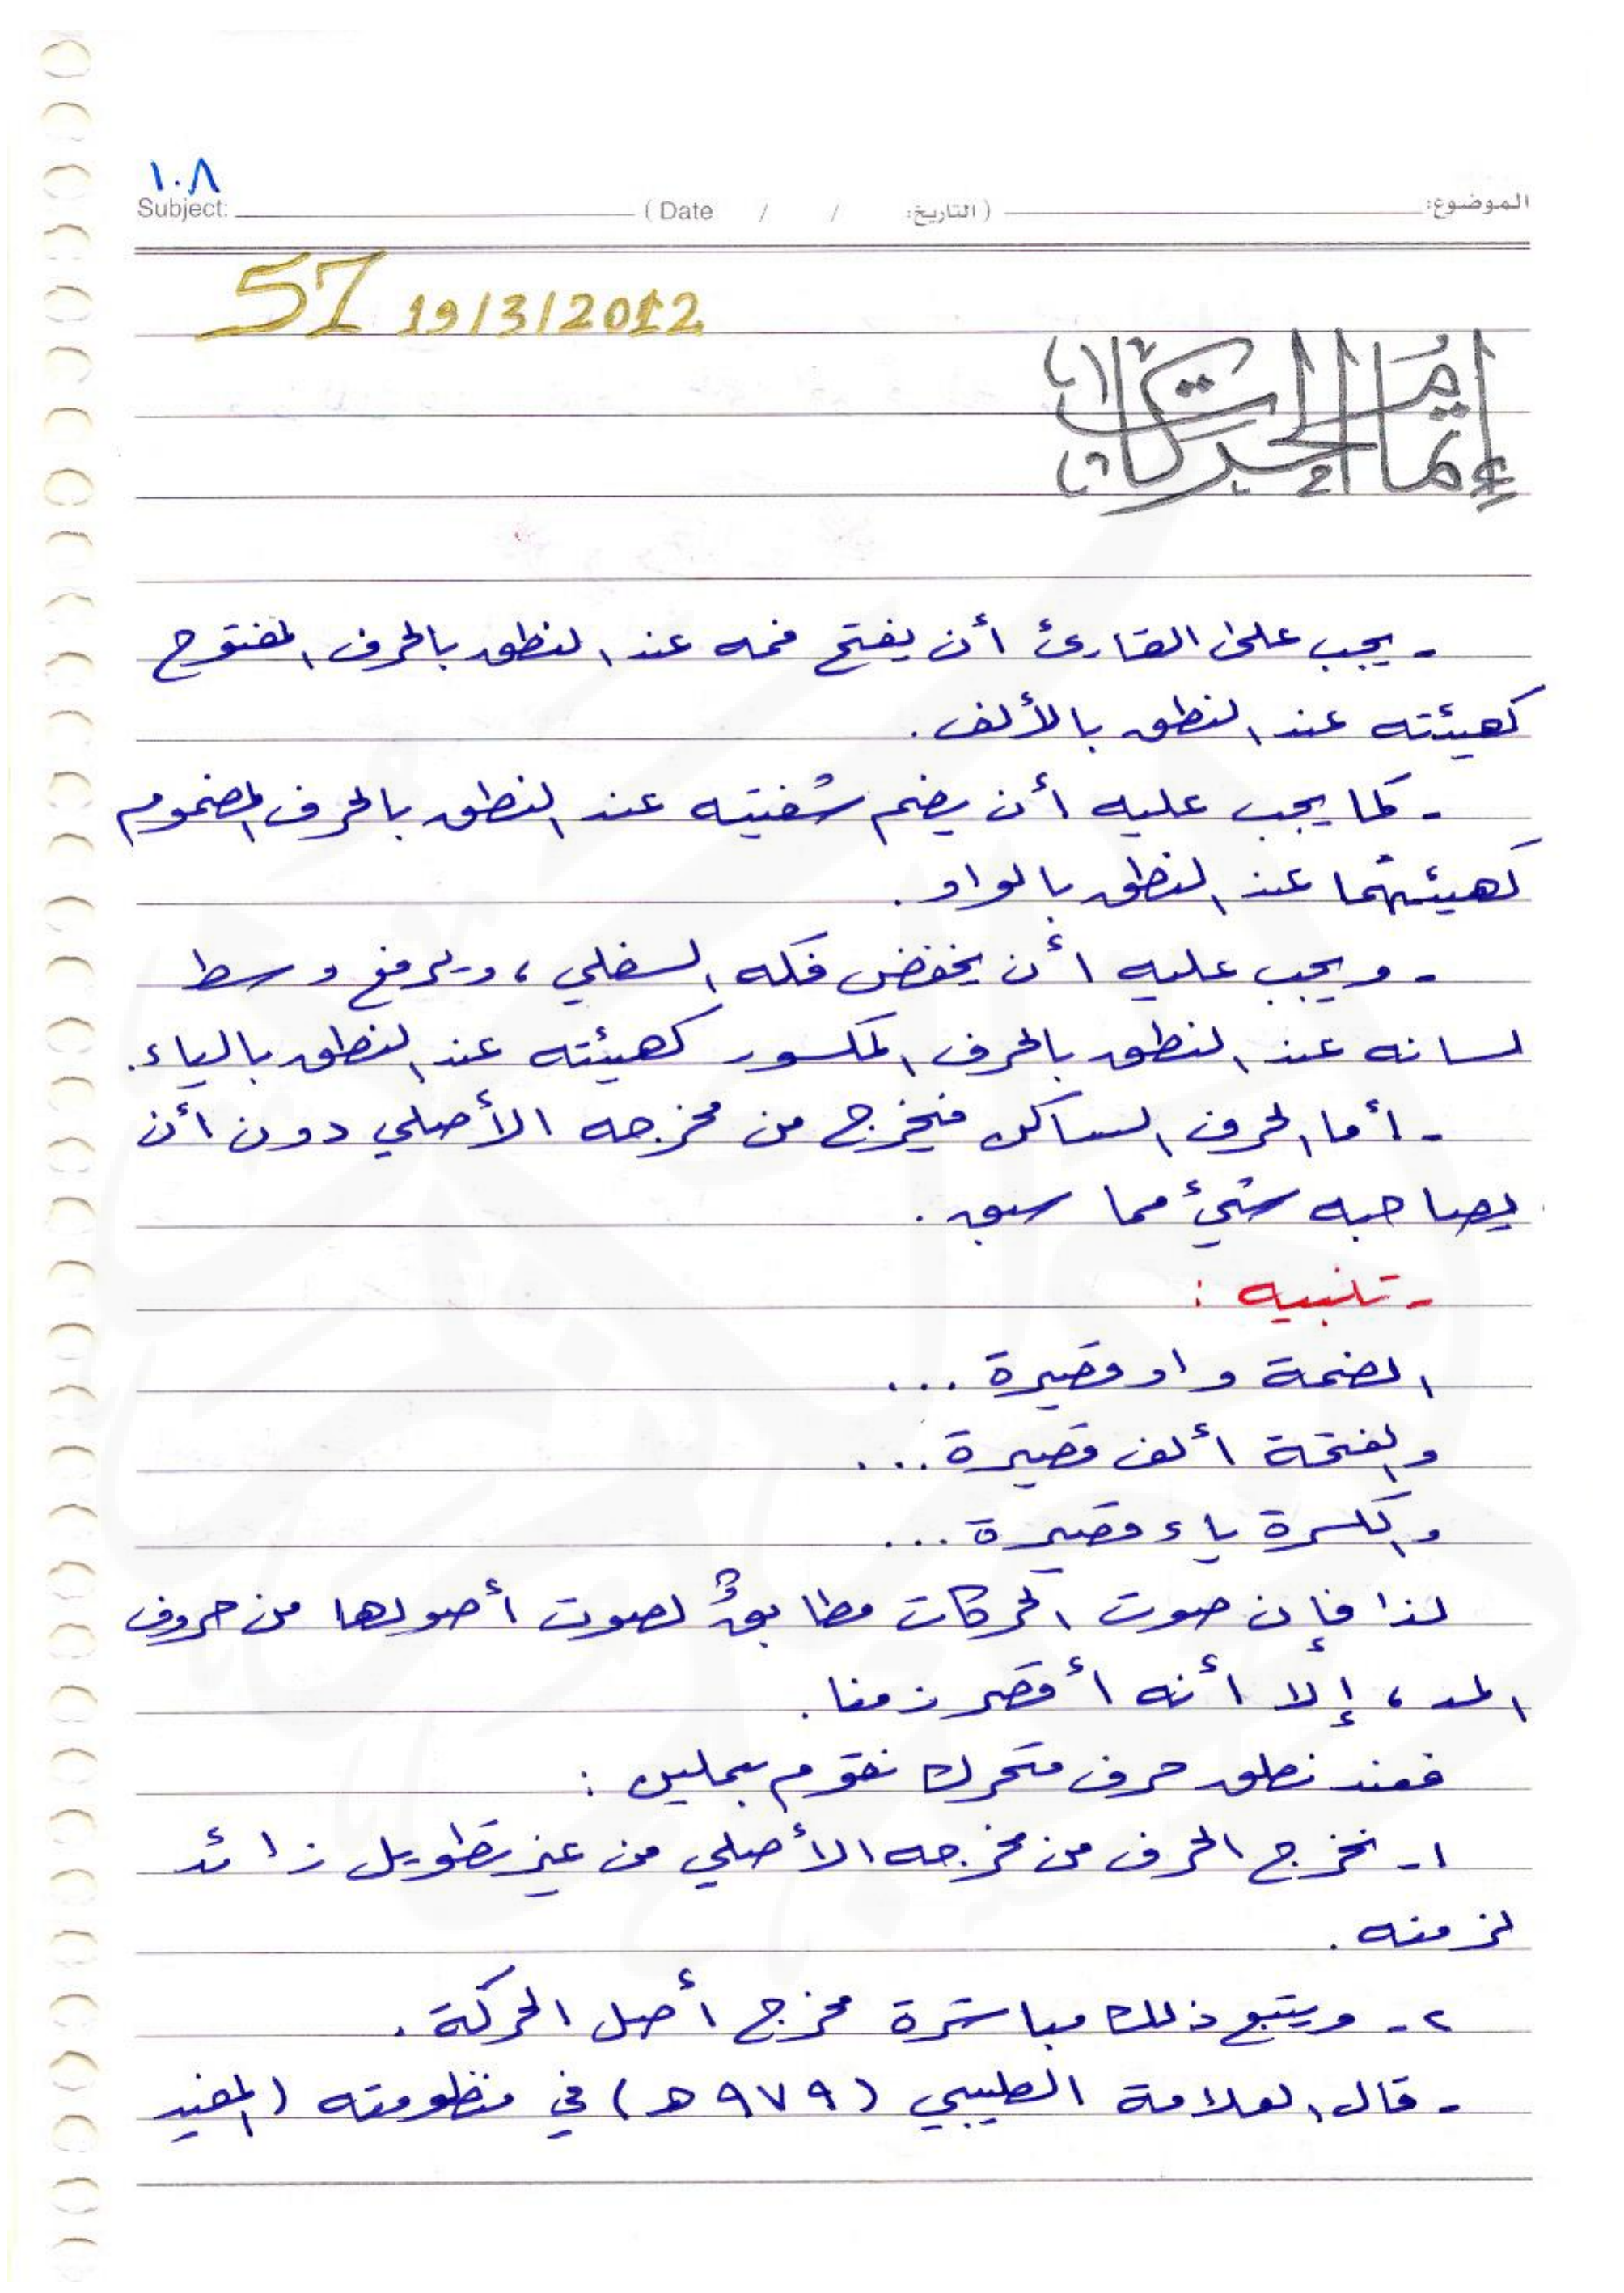 ١٠٨
الموضوع: (التاريخ: / / Date) Subject:
51 19/3/2012
إتمام الحركات
- يجب على القارئ أن يفتح فمه عند النطق بالحرف المفتوح
كهيئته عند النطق بالألف.
- كما يجب عليه أن يضم شفتيه عند النطق بالحرف المضموم
كهيئتهما عند النطق بالواو.
- ويجب عليه أن يخفض فكه السفلي، ويرفع وسط
لسانه عند النطق بالحرف المكسور كهيئته عند النطق بالياء.
- أما الحرف الساكن فيخرج من مخرجه الأصلي دون أن
يصاحبه شيء مما سبق.
- تنبيه :
الضمة واو قصيرة ...
والفتحة ألف قصيرة ...
والكسرة ياء قصيرة ...
لذا فإن صوت الحركات مطابقٌ لصوت أصولها من حروف
المد، إلا أنه أقصر زمنا.
فعند نطق حرف متحرك نقوم بعملين :
١- نخرج الحرف من مخرجه الأصلي من غير تطويل زائد
لزمنه.
٢- ويتبع ذلك مباشرة مخرج أصل الحركة.
- قال العلامة الطيبي (٩٧٩ هـ) في منظومته (المفيد